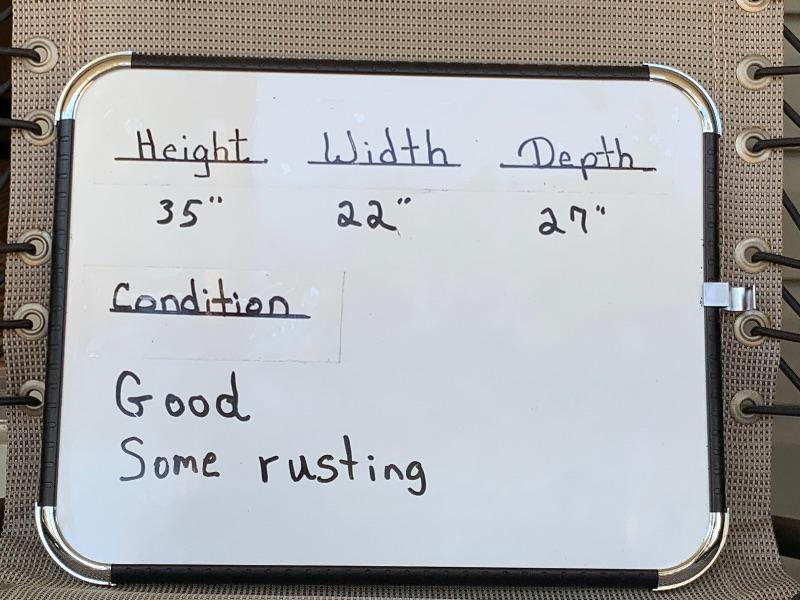 Height Width Depth
35" 22" 27"
Condition
Good
Some rusting